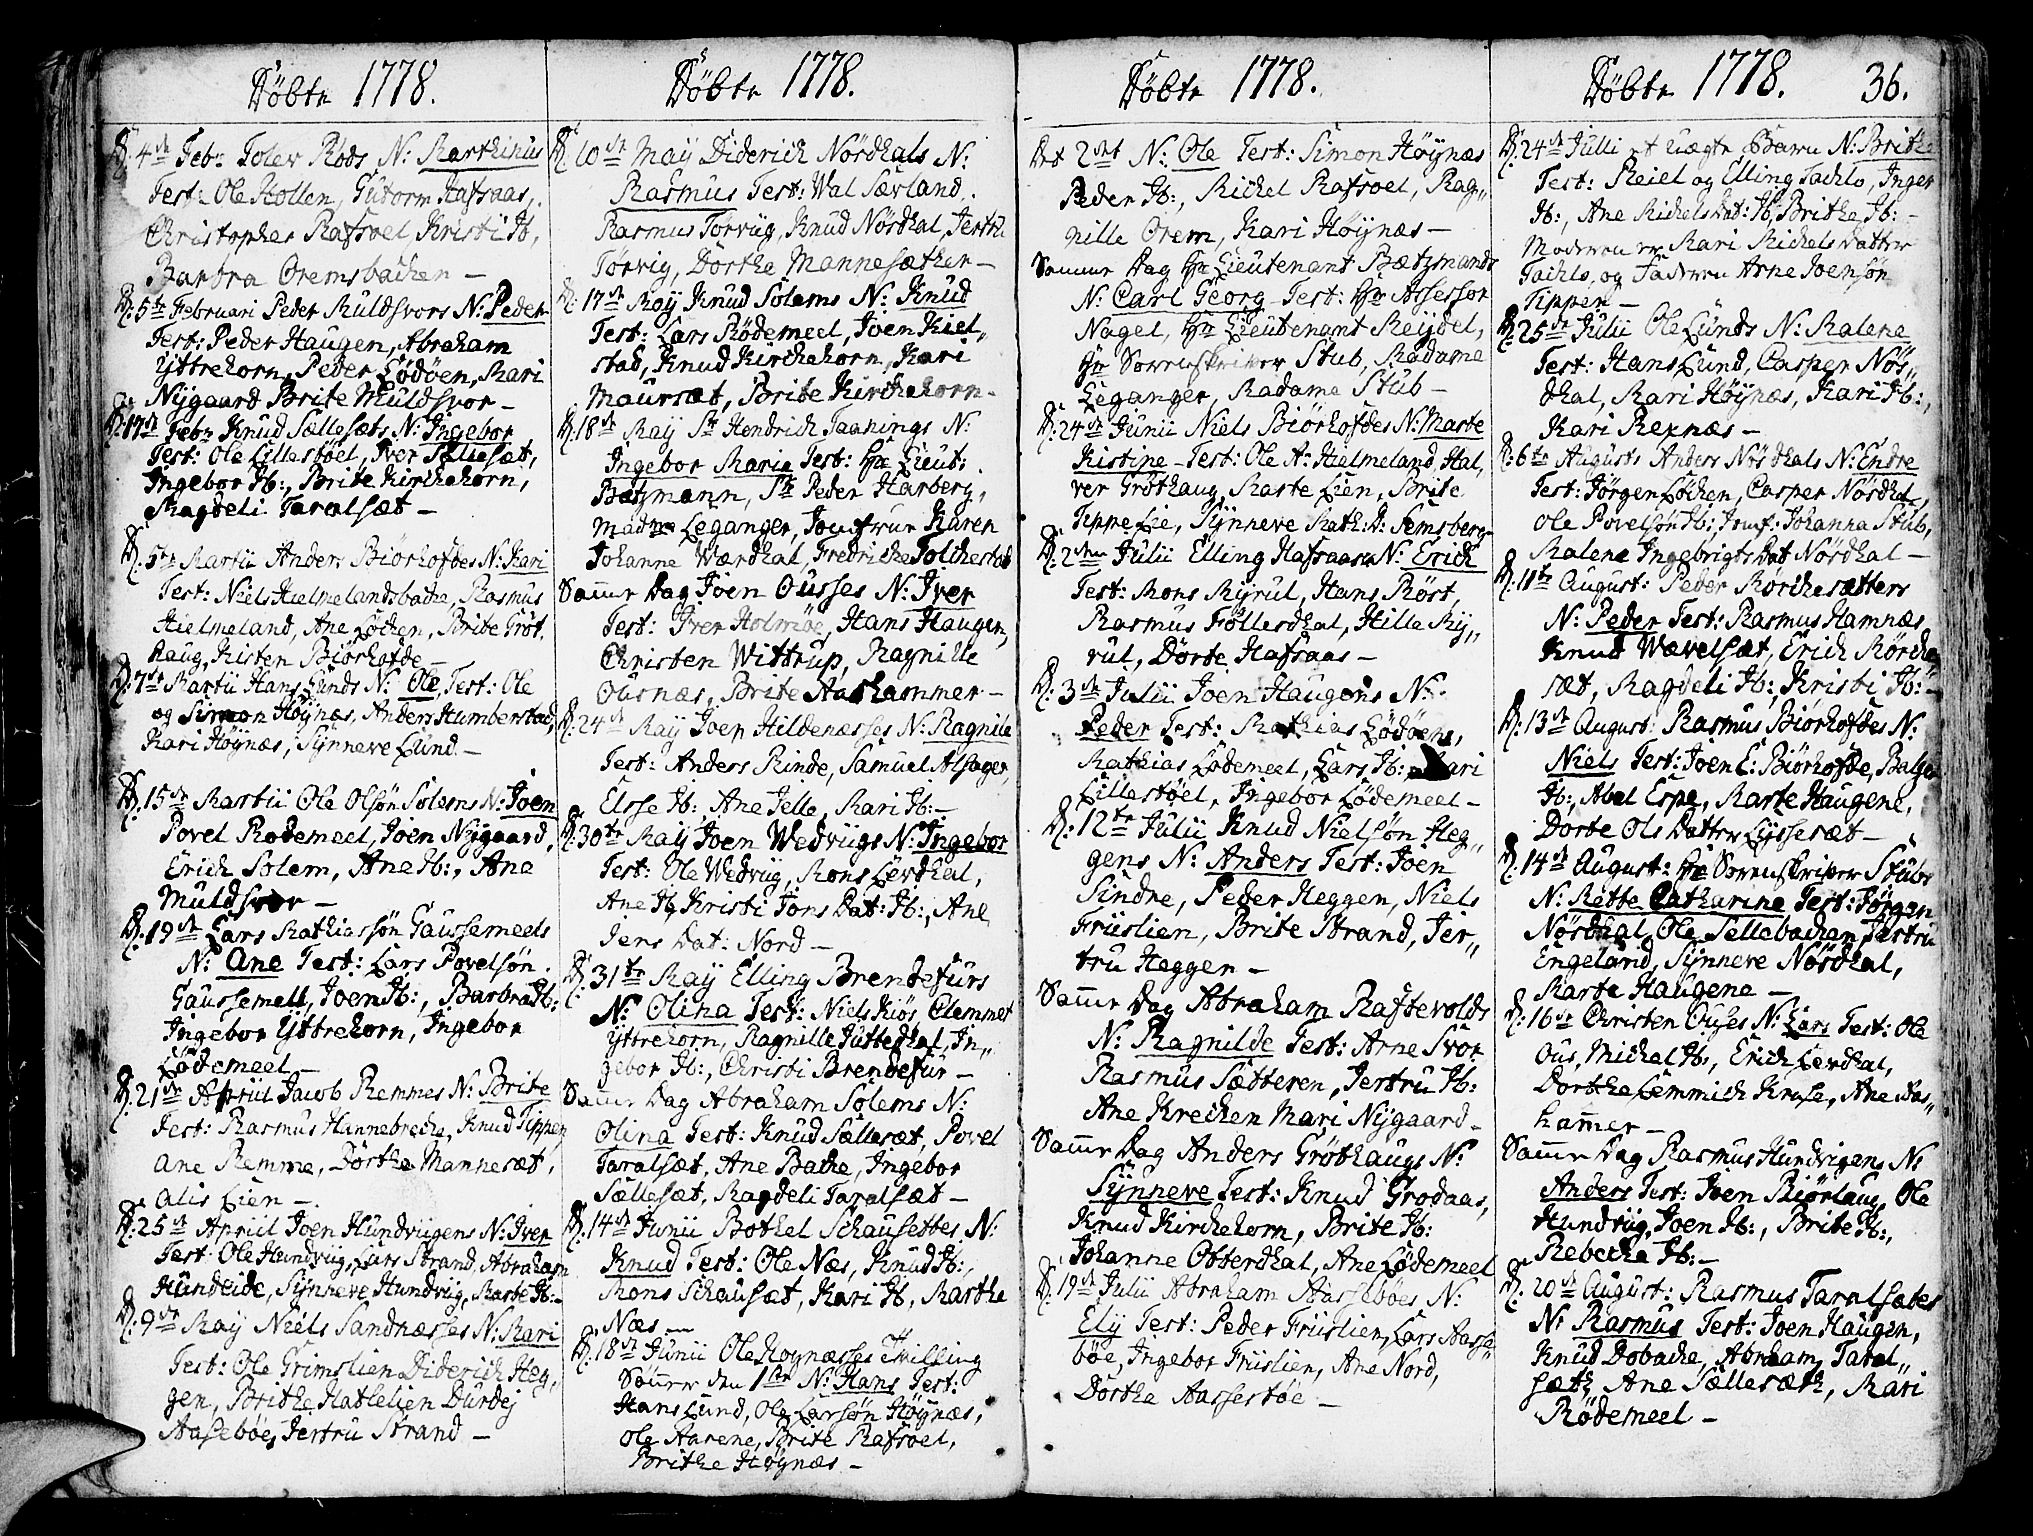 Döbte 1778.
D. 4de Febr: Tolev Röds N: Marthinus
Test: Ole Hollen, Gutorm Hafsaas,
Christopher Rafsvel, Kristi Ib,
Barbra Oremsbacken —
D: 5te Februari Peder Muldsvors N: Peder
Test: Peder Haugen, Abraham
Yttrehorn, Peder Lödöen, Mari
Nygaard Brite Muldsvor —
D: 17de Febr Knud Sællesæts N: Ingebor
Test: Ole Lillestöel, Iver Sællesæt,
Ingebor Ib:, Brite Kirchehorn,
Magdeli Taralsæt —
D. 5te Martii Anders Biörhofdes N: Kari
Test: Niels Hielmelandsbacke, Rasmus
Hielmeland, Ane Löcken, Brite Gröt,
haug, Kisten Biörhofde —
D: 7de Martii Hans Lunds N: Ole, Test: Ole
og Simon Höynæs, Anders Humberstad,
Kari Höynæs, Synneve Lund —
D. 15de Martii Ole Olsön Solems N: Joen
Povel Rödemeel, Joen Nygaard,
Erich Solem, Ane Ib:, Ane
Muldsvor —
D. 19de Lars Mathiassön Gaussemeels
N: Ane Test: Lars Povelsön
Gaussemell, Joen Ib:, Barbra Ib:
Ingebor Yttrehorn, Ingebor
Lödemeel —
D. 21de Apriil Jacob Remmes N: Brite
Test: Rasmus Hunnebrecke, Knud Tippen
Ane Remme, Dörthe Mannesæt,
Alis Lien —
D: 25de Apriil Joen Hundviigens N: Iver
Test: Ole Hundviig, Lars Strand, Abraham
Hundeide, Synneve Hundviig, Marte Ib: —
D: 9de May Niels Sandnæsses N: Mari
Test: Ole Grimslien Diderich Heg,
gen, Brithe Hatlelien Durdej
Aaseböe, Jertru Strand —
Döbte 1778.
D. 10de May Diderich Nördhals N:
Rasmus Test: Wal Særland
Rasmus Törviig, Knud Nördhal, Jertru
Törvig, Dorthe Mannesæther —
D: 17de May Knud Solems N: Knud
Test: Lars Rödemeel, Joen Kiel„
stad, Knud Kirchehorn, Kari
Maursæt, Brite Kirchehorn —
D: 18de May Sr Hendrich Taanings N:
Ingebor Marie Test: Hr Lieut:
Bætzmann, Sr Peder Harberg,
Madme Leganger, Jomfrue Karen
Johanne Wærdhal, Fredriche Solchestad
Samme Dag Joen Ousses N: Iver
Test: Iver Holmöe, Hans Haugen,
Christen Wittrup, Ragnille
Ousnæs, Brite Aashammer —
D. 24de May Joen Hildenæsses N: Ragnile
Test: Anders Rinde, Samuel Alsager,
Elsse Ib: Ane Jelle, Mari Ib: —
D: 30te May Joen Wedviigs N: Ingebor
Test: Ole Wedviig, Mons Lerdhal,
Ane Ib, Kristi Jons Dat: Ib:, Ane
Jens Dat: Nord —
D. 31te May Elling Brendefurs
N: Olina Test: Niels Kiös, Clemmet
Yttrehorn, Ragnille Juttedhal, In„
gebor Ib:, Christi Brendefur —
Samme Dag Abraham Solems N:
Olina Test: Knud Sællesæt, Povel
Taralsæt, Ane Bache, Ingebor
Sællesæt, Magdeli Taralsæt —
D. 14de Junii Bothel Schausettes N:
Knud Test: Ole Næs, Knud Ib:,
Mons Schausæt, Kari Ib, Marthe
Næs —
D: 18de Junii Ole Höynæsses Tvilling
Sönner den 1ste N: Hans Test:
Hans Lund, Ole Larsön Höynæs,
Ole Aarene, Brite Rafsvel,
Brithe Höynæs —
Döbte 1778.
Det 2det N: Ole Test: Simon Höynæs
Peder Ib:, Michel Rafsvel, Rag„
nille Orem, Kari Höynæs —
Samme Dag Hr Lieutenant Bætzmands
N: Carl Georg Test: Hr Assessor
Nagel, Hr Lieutenant Reydel,
Hr Sorrenskriver Stub, Madame
Leganger, Madame Stub —
D. 24de Junii Niels Biörhofdes N: Marte
Kistine Test: Ole A: Hielmeland, Hal,
ver Gröthaug, Marte Lien, Brite
Tippe Lie, Synneve Math: D: Semsberg
D. 2den Julii Elling Hafsaases N: Erich
Test: Mons Myrul, Hans Röst,
Rasmus Föllesdhal, Hille My„
rul, Dorte Hafsaas —
D: 3de Julii Joen Haugens N:
Peder Test: Mathias Lödöens,
Mathias Lödemeel, Lars Ib: Mari
Lillestöel, Ingebor Lödemeel —
D: 12te Julii Knud Nielsön Heg„
gens N: Anders Test: Joen
Sindre, Peder Heggen, Niels
Friislien, Brite Strand, Jer„
tru Heggen —
Samme Dag Abraham Raftevolds
N: Ragnilde Test: Arne Svor
Rasmus Sætteren, Jertru Ib:
Ane Krecken Mari Nygaard —
Samme Dag Anders Gröthaugs N:
Synneve Test: Knud Grodaas,
Knud Kirchehorn, Brite Ib:
Johanne Otterdhal, Ane Lödemeel
D. 19de Julii Abraham Aasseböes N:
Ely Test: Peder Friislien, Lars Aasse„
böe, Ingebor Friislien, Ane Nord,
Dorthe Aassestöe —
Döbte 1778. 36.
D: 24de Julii et uægte Barn N: Brithe
Test: Reiel og Elling Tachlo, Inger
Ib:, Ane Michels Dat: Ib, Brithe Ib: —
Moderen er Mari Michels Datter
Tachlo, og Faderen Arne Joensön
Tippen —
D: 25de Julii Ole Lunds N: Malena
Test: Hans Lund, Casper Nös„
dhal, Mari Höynæs, Kari Ib:,
Kari Rexnæs —
D: 6te Augusts Anders Nös dhals N: Endre
Test: Jörgen Löcken, Casper Nördhal,
Ole Povelsön Ib:, Jomf: Johanna Stub,
Malene Ingebrigts Dat Nördhal —
D. 11te August: Peder Morchesætters
N: Peder Test: Rasmus Hamnæs,
Knud Wævelsæt, Erich Mörche
sæt, Magdeli Ib:, Kristi Ib: —
D. 13de August: Rasmus Biörhofdes N:
Niels Test: Joen E: Biörhofde, Balzer
Ib:, Abel Espe, Marte Haugene,
Dorte Ols Datter Lyssesæt —
D. 14de August: Hr Sorrenskriver Stubs
N: Mette Catharine Test: Jörgen
Nördhal, Ole Sellebacken, Jertru
Engeland, Synneve Nördhal,
Marte Haugene —
D: 16de Christen Ouses N: Lars Test: Ole
Ous, Michel Ib:, Erich Lerdhal,
Dorthe Lemmich Kruse, Ane Aas„
hammer —
Samme Dag Rasmus Hundvigens N:
Anders Test: Joen Biörlaug, Ole
Hundviig, Joen Ib:, Brite Ib:,
Rebecke Ib: —
D. 20de August: Rasmus Taralsætes
N: Rasmus Test: Joen Haugen,
Knud Dobache, Abraham Taral„
sæth, Ane Sællesæth, Mari
Rödemeel —